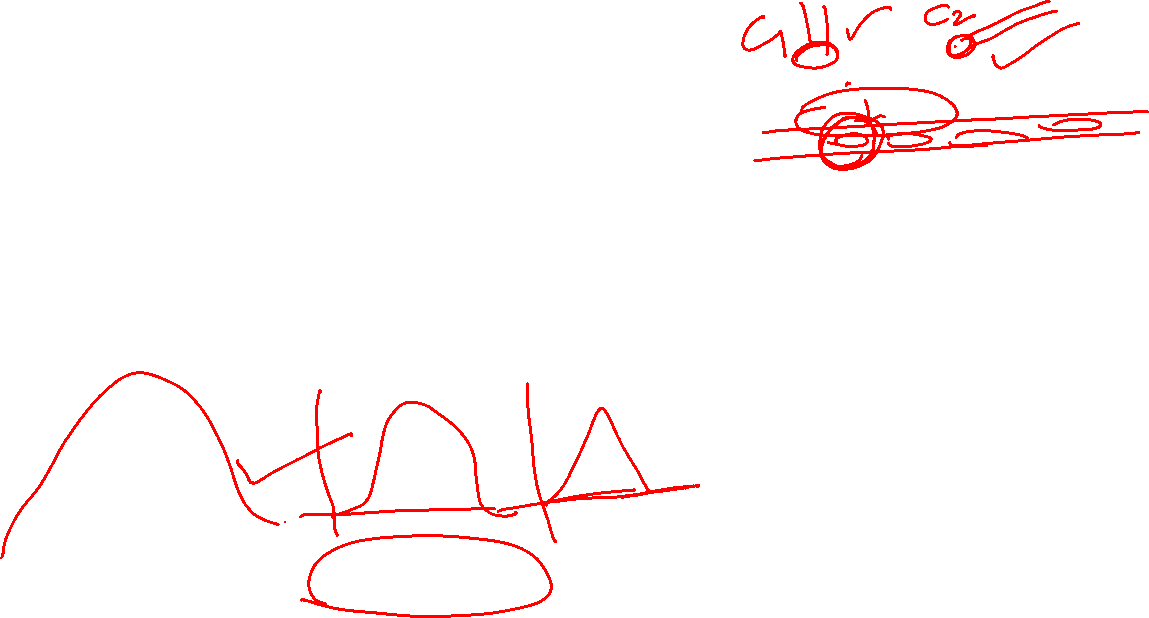 C1 C2